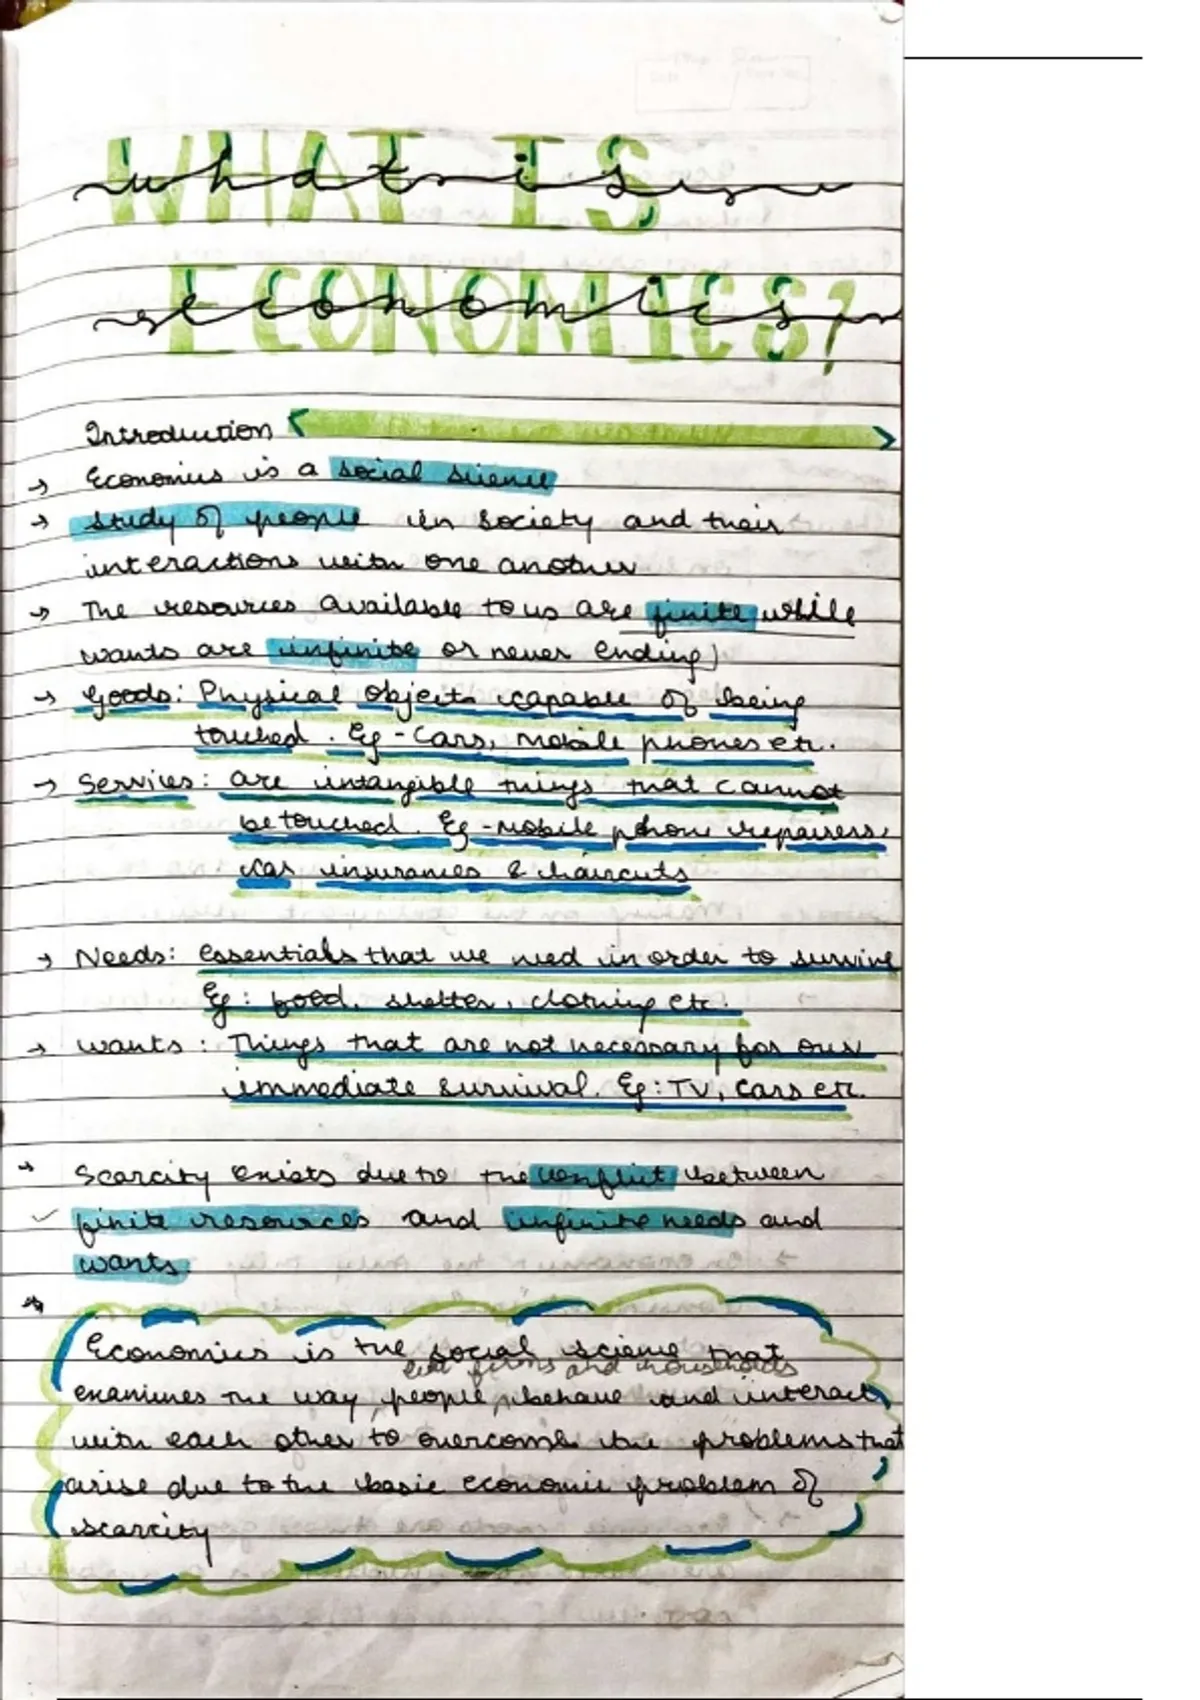 WHAT IS
what is
ECONOMICS?
economics
Introduction
→ Economics is a social science
→ Study of people in society and their
interactions with one another
→ The resources available to us are finite while
wants are infinite or never ending
→ Goods: Physical objects capable of being
touched. Eg - Cars, Mobile phones etc.
→ Services: are intangible things that cannot
be touched. Eg - Mobile phone repairers,
car insurances & haircuts
→ Needs: essentials that we need in order to survive
Eg: food, shelter, clothing etc.
→ Wants: Things that are not necessary for our
immediate survival. Eg: TV, Cars etc.
→ Scarcity exists due to the conflict between
finite resources and infinite needs and
wants.
Economics is the social science that
firms and households
examines the way people, behave and interact
with each other to overcome the problems that
arise due to the basic economic problem of
scarcity